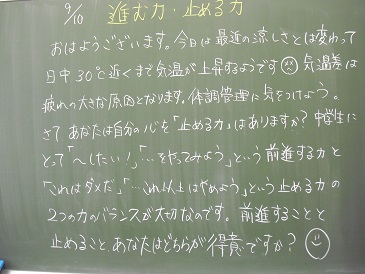 9/10 進む力・止める力
おはようございます。今日は最近の涼しさとは変わって
日中30℃近くまで気温が上昇するようです 気温差は
疲れの大きな原因となります。体調管理に気をつけよう。
さて あなたは自分の心を「止める力」はありますか？中学生に
とって「～したい！」「…をやってみよう」という前進する力と
「これはダメだ」「…これ以上はやめよう」という止める力の
2つの力のバランスが大切なのです。前進することと
止めること、あなたはどちらが得意ですか？